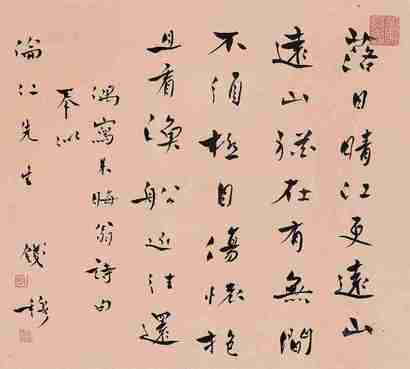 落日晴江更遠山
遠山猶在有無間
不須極目傷懷抱
且看漁船近往還
偶寫朱晦翁詩句
奉
江先生 錢穆